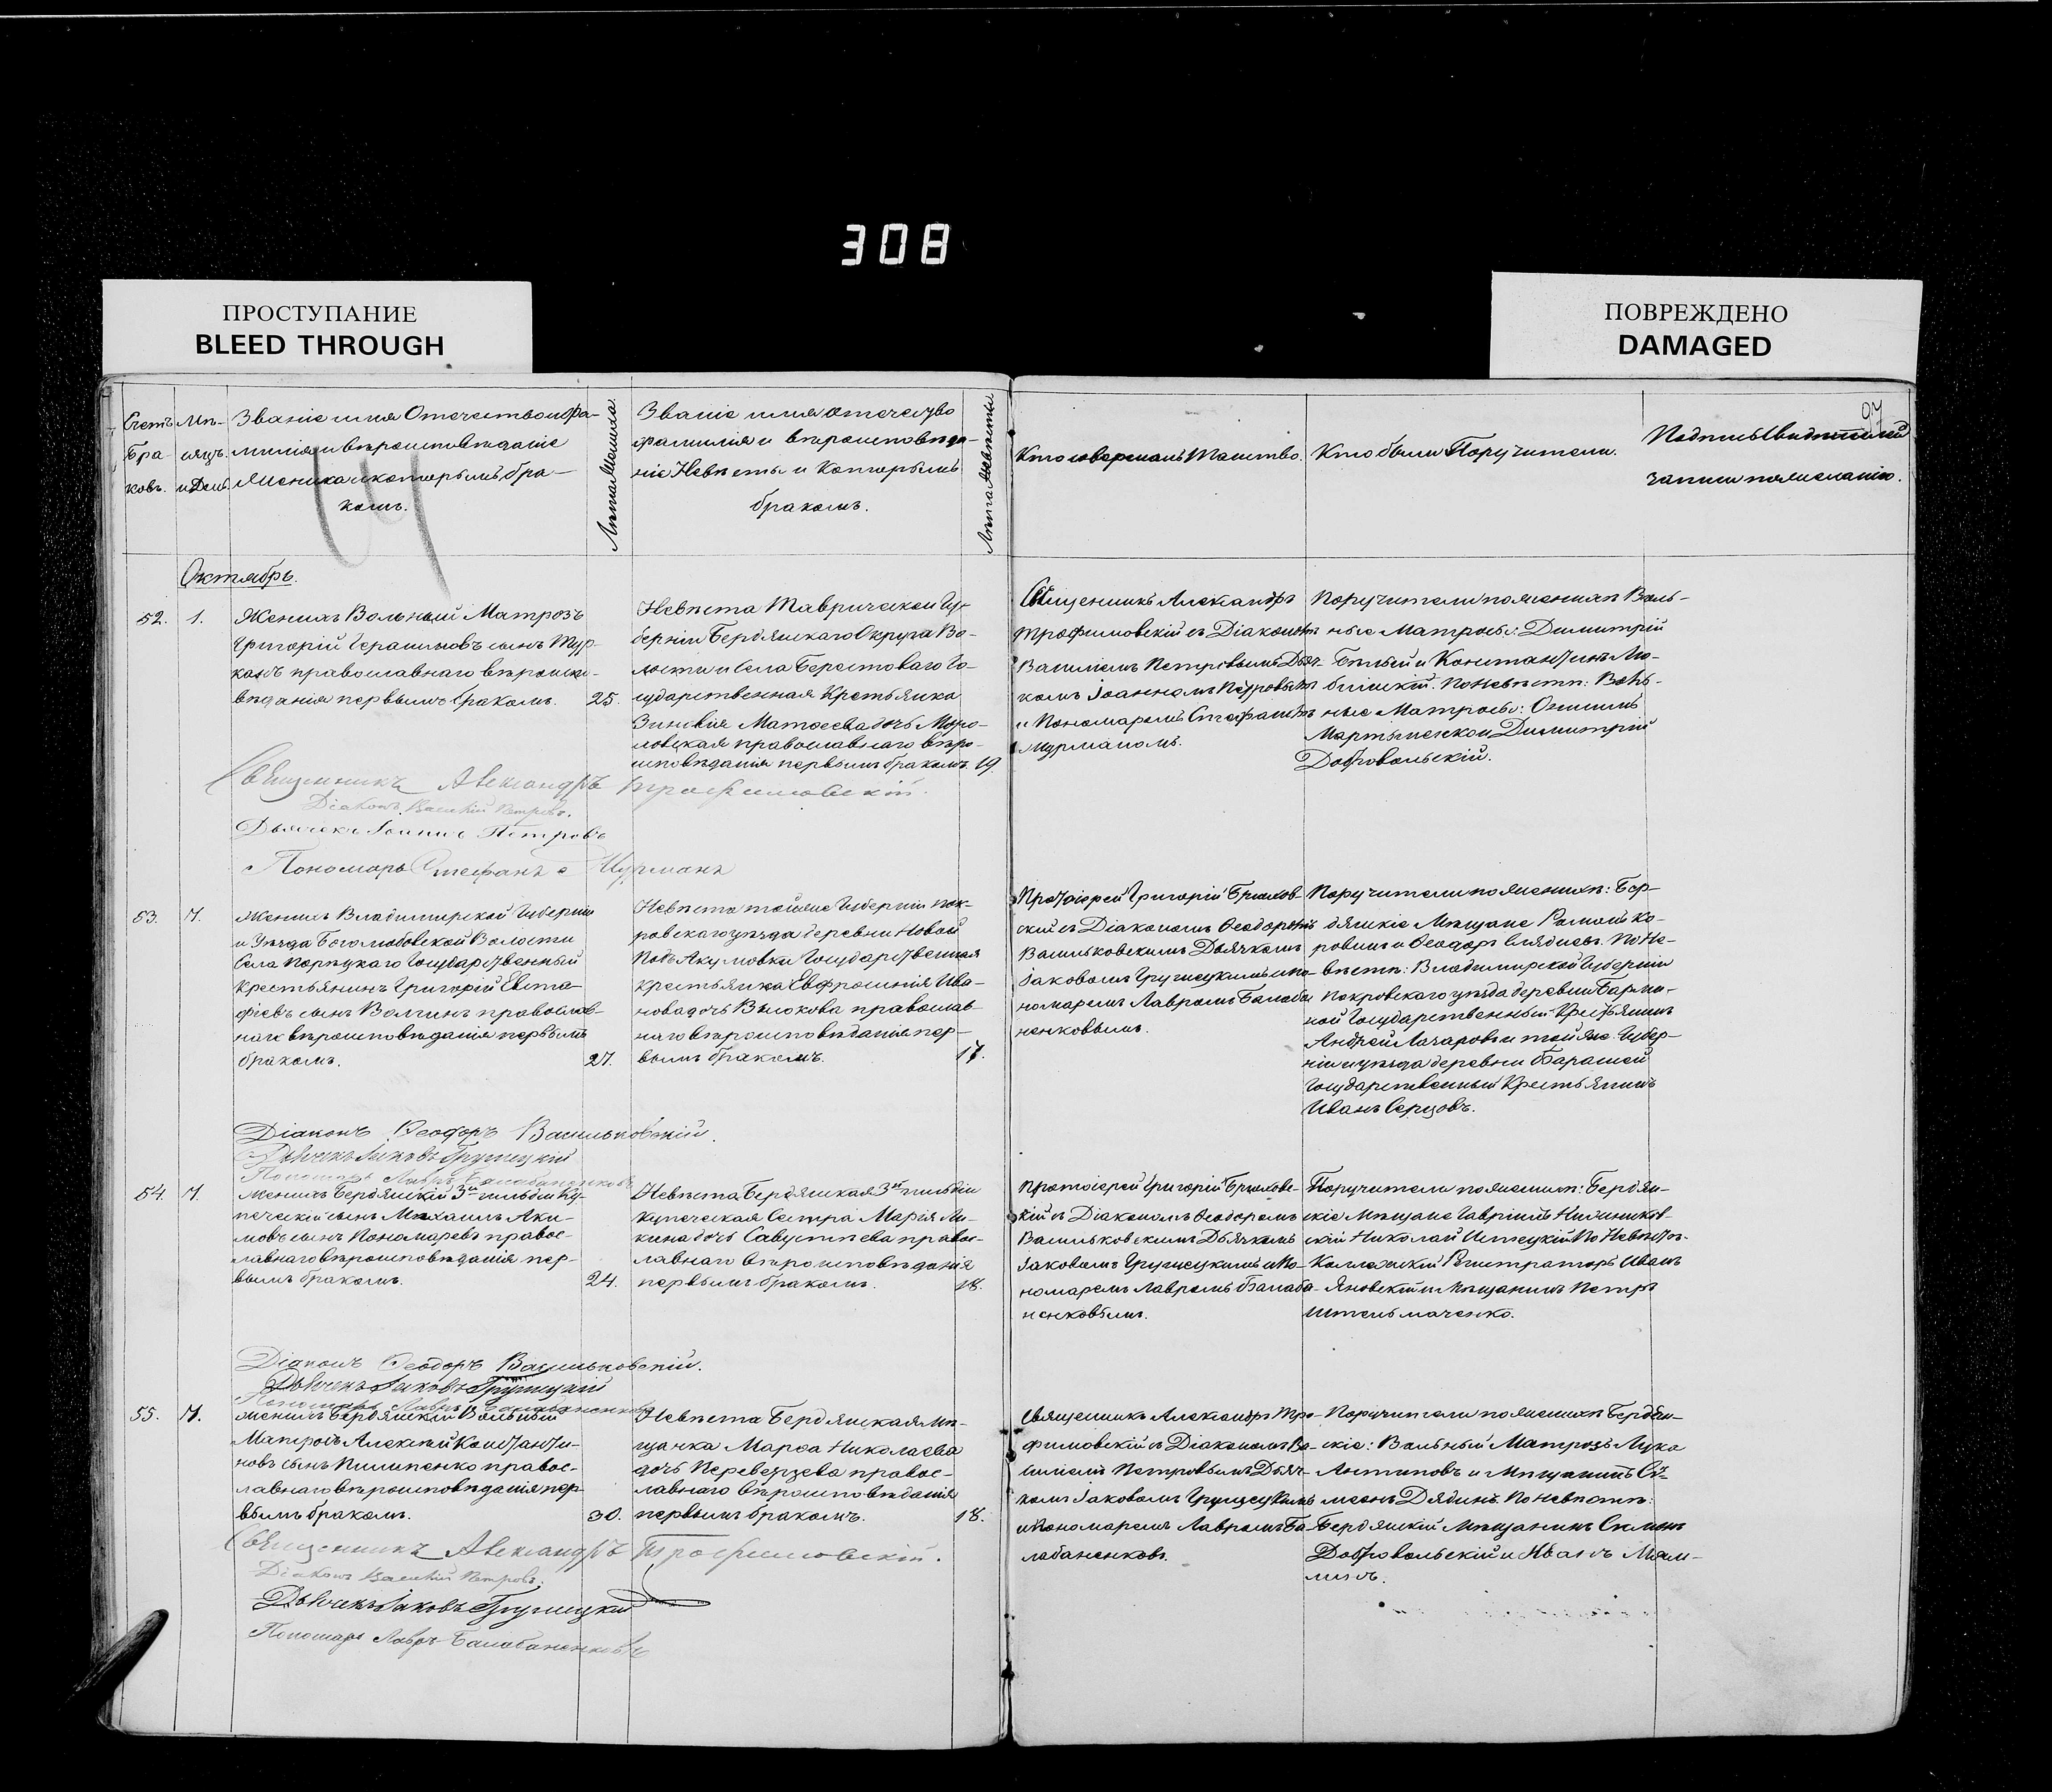 308
ПРОСТУПАНИЕ
BLEED THROUGH
ПОВРЕЖДЕНО
DAMAGED
97
Счетъ
Бра-
ковъ.
Мѣ-
сяцъ.
и День.
Званіе имя Отечество и фа-
милія и вѣроисповѣданіе
Жениха и которымъ бра-
комъ.
Лѣта Жениха.
Званіе имя отечество
фамилія и вѣроисповѣда-
ніе Невѣсты и Которымъ
бракомъ.
Лѣта Невѣсты
Кто совершалъ Таинство.
Кто были Поручители.
Подпись Свидетелей
записи по желанію.
Октябрь.
52. 1.
Женихъ Вольный Матрозъ
Григорій Герасимовъ сынъ Тур-
канъ православнаго вѣроиспо-
вѣданія первымъ бракомъ. 25.
Невѣста Таврической Гу-
берніи Бердянскаго Округа Во-
лости и Села Берестоваго Го-
сударственная Крестьянка
Зиновія Матвеева дочь Муро-
ловская православнаго вѣро-
исповѣданія первымъ бракомъ. 19.
Священникъ Александръ
Трофимовскій съ Діакономъ
Василіемъ Петровымъ Дьяч-
комъ Іоанномъ Петровымъ
и Пономаремъ Стефаномъ
Мурманомъ.
Поручители по женихѣ Воль-
ные Матросы: Димитрій
Бѣлый и Константинъ Лю-
бицкій. По Невѣстѣ: Воль-
ные Матросы: Онисимъ
Мартыненко и Димитрій
Добровольскій.
Священникъ Александръ Трофимовскій.
Діаконъ Василій Петровъ.
Дьячекъ Іоаннъ Петровъ
Пономарь Стефанъ Мурманъ
53. 7.
Женихъ Владимирской Губерніи
и Уѣзда Боголюбовской Волости
Села Порецкаго Государственный
Крестьянинъ Григорій Евста-
фіевъ сынъ Волгинъ православ-
наго вѣроисповѣданія первымъ
бракомъ. 27.
Невѣста тойже Губерніи Пок-
ровскаго уѣзда деревни Новой
Подъ Акумовки Государственная
крестьянка Евфросинія Ива-
нова дочь Вьюкова православ-
наго вѣроисповѣданія пер-
вымъ бракомъ. 17.
Протоіерей Григорій Брюхов-
скій съ Діакономъ Феодоромъ
Васильковскимъ Дьячкомъ
Іаковомъ Грушецкимъ и по-
номаремъ Лавромъ Балаба-
ненковымъ.
Поручители по женихѣ: Бер-
дянскіе Мѣщане Романъ Ко-
ровинъ и Феодоръ Слядневъ. По Не-
вѣстѣ: Владимирской Губерніи
Покровскаго уѣзда деревни
Государственный Крестьянинъ
Андрей Лазаровъ и тойже Губер-
ніи и уѣзда деревни
Государственный Крестьянинъ
Иванъ Серцовъ.
Діаконъ Феодоръ Васильковскій.
Дьячекъ Іаковъ Грушецкій
Пономарь Лавръ Балабаненковъ
54. 7.
Женихъ Бердянскій 3й гильдіи Ку-
печескій сынъ Михаилъ Аки-
мовъ сынъ Пономаревъ правос-
лавнаго вѣроисповѣданія пер-
вымъ бракомъ. 24.
Невѣста Бердянская 3й гильдіи
купеческая Сестра Марія Ли-
кина дочь Савустьева правос-
лавнаго вѣроисповѣданія
первымъ бракомъ. 18.
Протоіерей Григорій Брюховс-
кій съ Діакономъ Феодоромъ
Васильковскимъ Дьячкомъ
Іаковомъ Грушецкимъ и По-
номаремъ Лавромъ Балаба-
ненковымъ.
Поручители по женихѣ: Бердян-
скіе Мѣщане Гавріилъ
Николай По Невѣстѣ
Коллежскій Регистраторъ Иванъ
Яновскій и Мѣщанинъ Петръ
Штельмаченко.
Діаконъ Феодоръ Васильковскій.
Дьячекъ Іаковъ Грушецкій
Пономарь Лавръ Балабаненковъ
55. 7.
Женихъ Бердянскій Вольный
Матрозъ Алексѣй Константи-
новъ сынъ Пилипенко правос-
лавнаго вѣроисповѣданія пер-
вымъ бракомъ. 30.
Невѣста Бердянская Мѣ-
щанка Марѳа Николаева
дочь Переверзева правос-
лавнаго вѣроисповѣданія
первымъ бракомъ. 18.
Священникъ Александръ Тро-
фимовскій съ Діакономъ Ва-
силіемъ Петровымъ Дьяч-
комъ Іаковомъ Грушецкимъ
и Пономаремъ Лавромъ Ба-
лабаненковъ.
Поручители по женихѣ Бердян-
скіе: Вольный Матрозъ Лука
Антиповъ и Мѣщанинъ Се-
менъ Дядинъ. По невѣстѣ:
Бердянскій Мѣщанинъ Симонъ
Добровольскій и Иванъ
Священникъ Александръ Трофимовскій.
Діаконъ Василій Петровъ.
Дьячекъ Іаковъ Грушецкій
Пономарь Лавръ Балабаненковъ